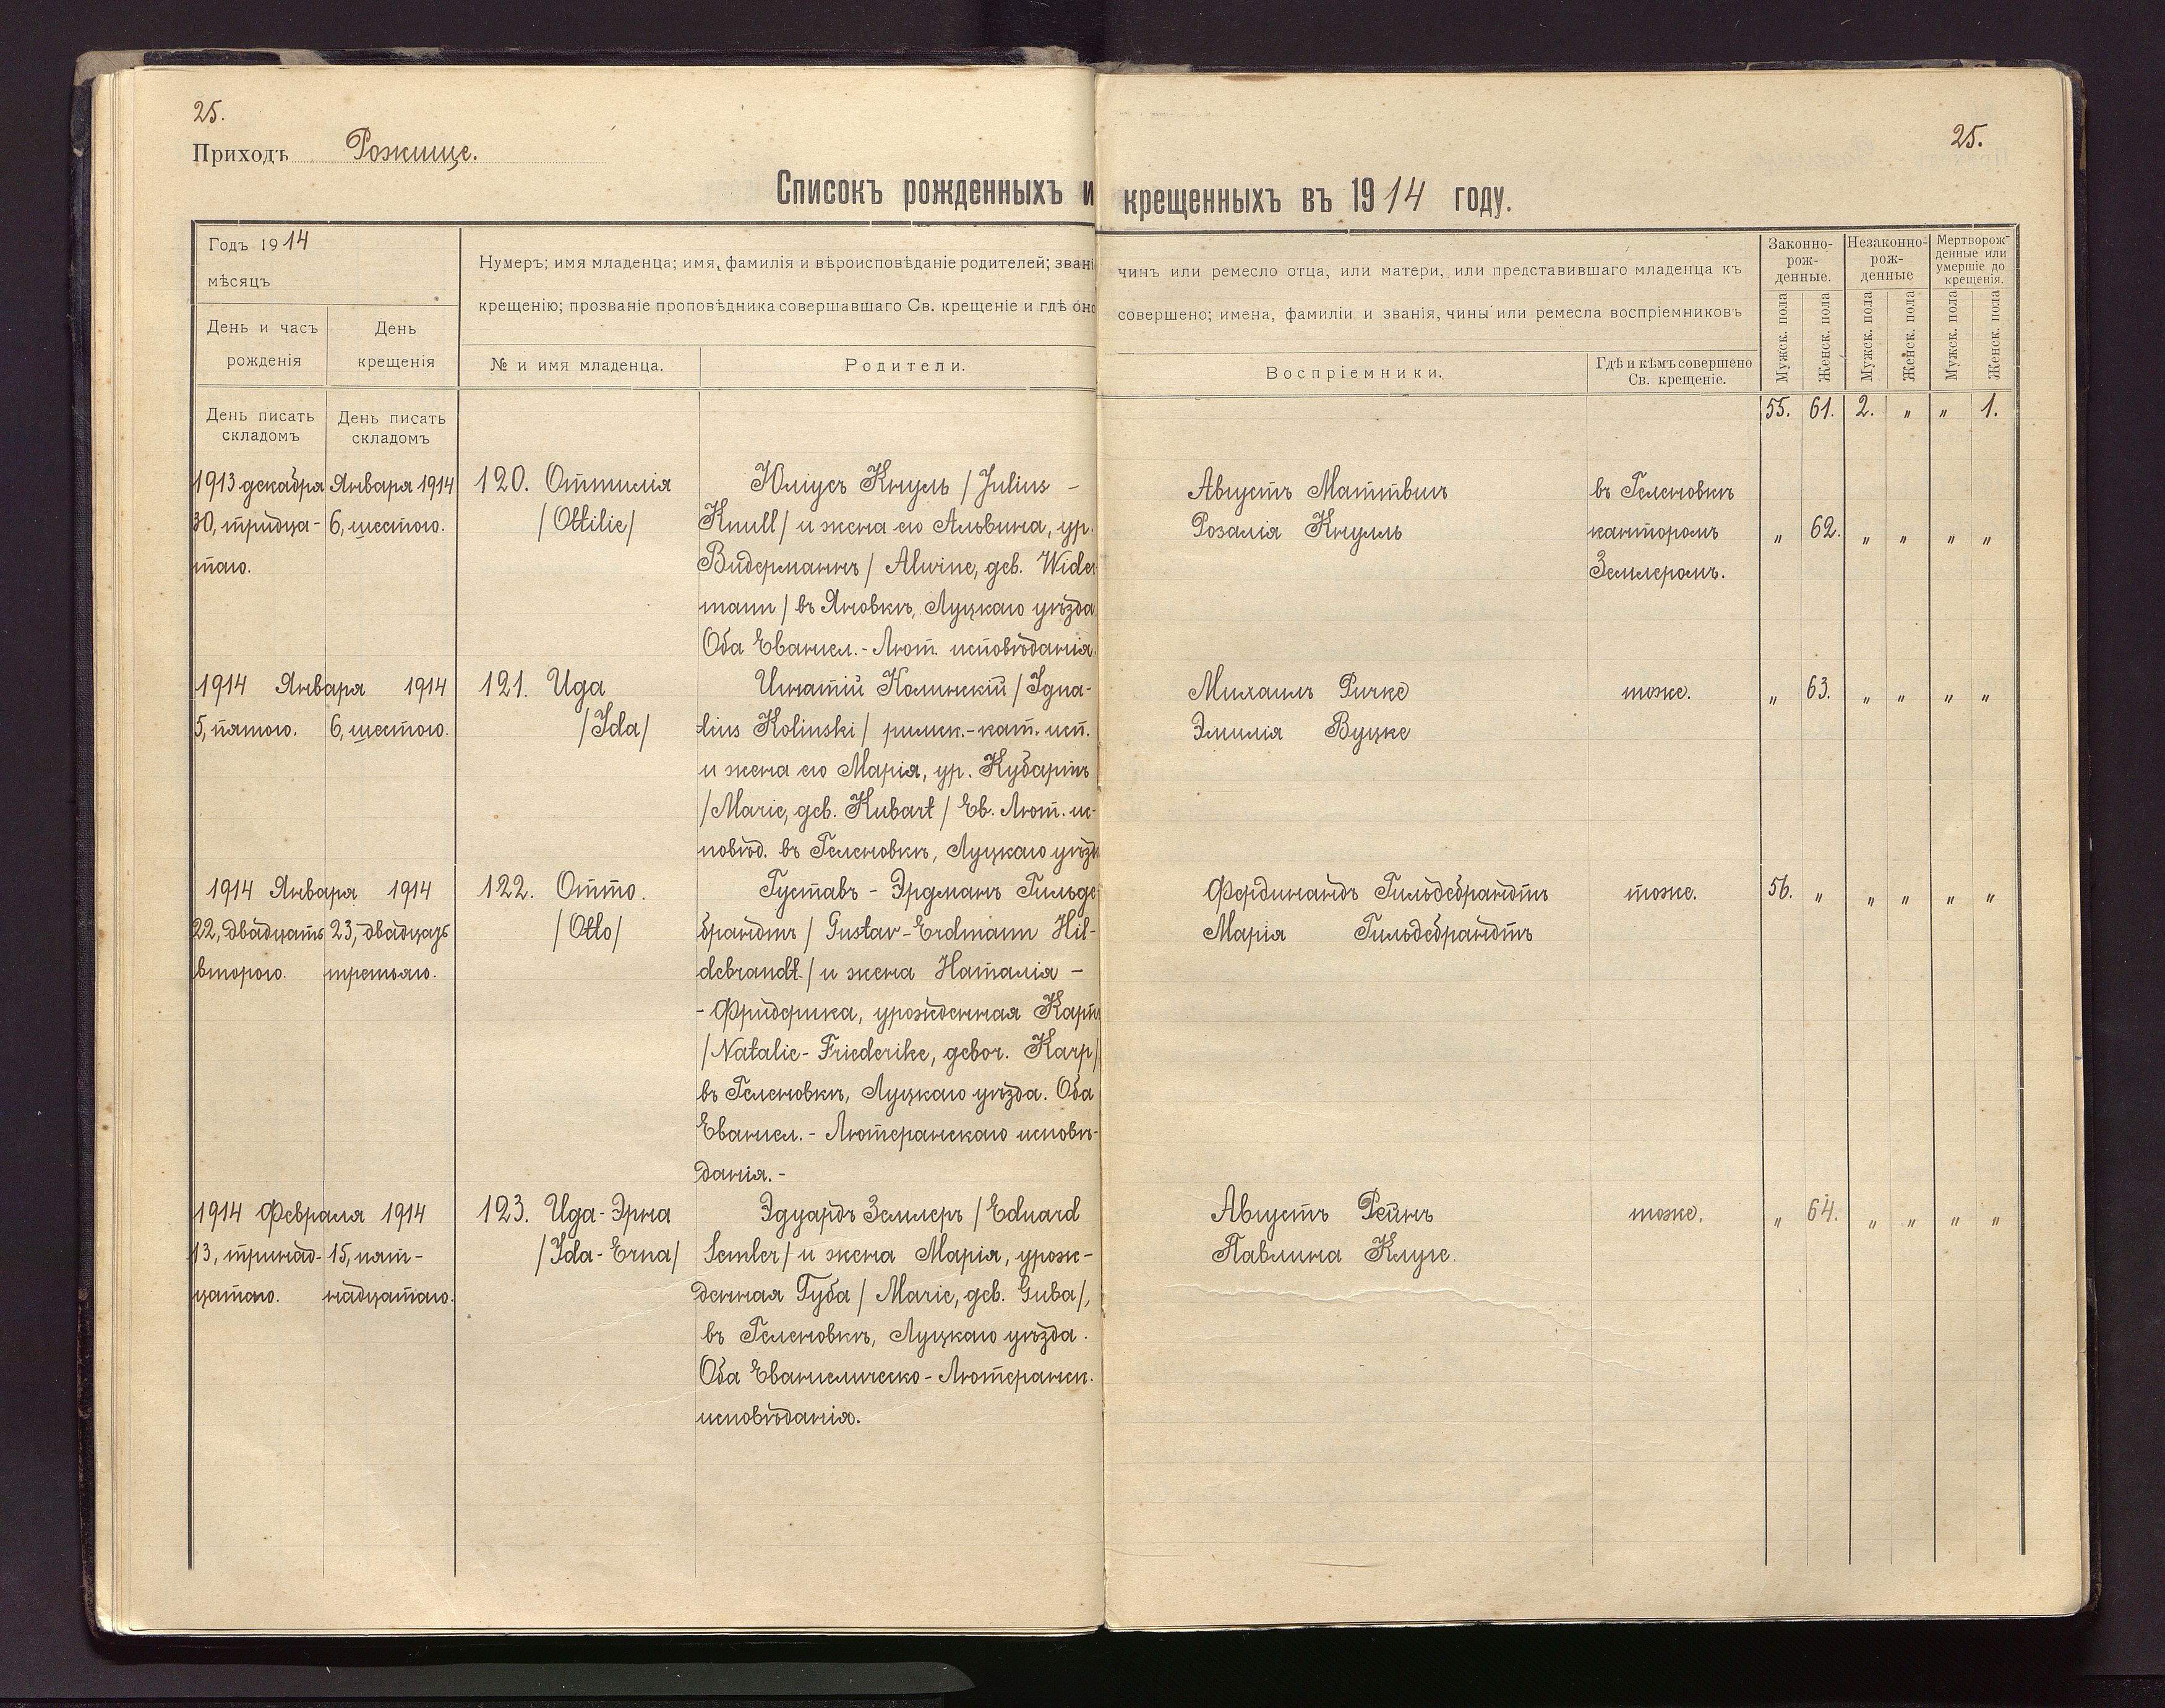 25.
25.
Приходъ Рожище.
Списокъ рожденныхъ и крещенныхъ въ 1914 году.
Годъ 1914
мѣсяцъ
День и часъ
рожденія
День
крещенія
Нумеръ; имя младенца; имя, фамилія и вѣроисповѣданіе родителей; звані
крещенію; прозваніе проповѣдника совершавшаго Св. крещеніе и гдѣ оно
№ и имя младенца.
Родители.
чинъ или ремесло отца, или матери, или представившаго младенца къ
совершено; имена, фамиліи и званія, чины или ремесла воспріемниковъ
Воспріемники.
Гдѣ и кѣмъ совершено
Св. крещеніе.
Законно-
рож-
денные.
Незаконно-
рож-
денные
Мертворож-
денные или
умершіе до
крещенія.
Мужск. пола
Женск. пола
Мужск. пола
Женск. пола
Мужск. пола
Женск. пола
День писать
складомъ
День писать
складомъ
55. 61. 2. " " 1.
1913 декабря
30, тридца-
таго.
Января 1914
6, шестого.
120. Оттилія
/Ottilie/
Юліусъ Кнуль /Julius -
Knull/ и жена его Альвина, ур.
Видерманнъ / Alwine, geb. Wider
mann / въ Яновкѣ, Луцкаго уѣзда
Оба Евангел.-Лют. исповѣданія.
Августъ Маттвигъ
Розалія Кнулль
въ Геленовкѣ
канторомъ
Земмлеромъ.
" 62. " " " "
1914 Января 1914
5, пятого.
6, шестого.
121. Ида
/Ida/
Игнатій Колинскій / Igna-
tius Kolinski / римск.-кат. исп.
и жена его Марія, ур. Кубартъ
/Marie, geb. Kubart / Ев. Лют. ис-
повѣд. въ Геленовкѣ, Луцкаго уѣзда
Михаилъ Ричке
Эмилія Вуцке
тоже.
" 63. " " " "
1914 Января 1914
22, двадцать
второго.
23, двадцать
третьяго.
122. Отто.
/Otto/
Густавъ - Эрдманъ Гильде
брандтъ / Gustav-Erdmann Hil-
debrandt / и жена Наталія -
- Фридерика, урожденная Карпъ
/Natalie-Friederike, gebor. Karp/
въ Геленовкѣ, Луцкаго уѣзда. Оба
Евангел.- Лютеранскаго исповѣ-
данія.-
Фердинандъ Гильдебрандтъ
Марія Гильдебрандтъ
тоже.
56. " " " " "
1914 Февраля 1914
13, тринад-
цатаго.
15, пят-
надцатаго.
123. Ида-Эрна
/Ida-Erna/
Эдуардъ Землеръ / Eduard
Semler/ и жена Марія, урож-
денная Губа / Marie, geb. Guba/,
въ Геленовкѣ, Луцкаго уѣзда.
Оба Евангелическо-Лютеранск.
исповѣданія.
Августъ Рейнъ
Павлина Клуге.
тоже.
" 64. " " " "